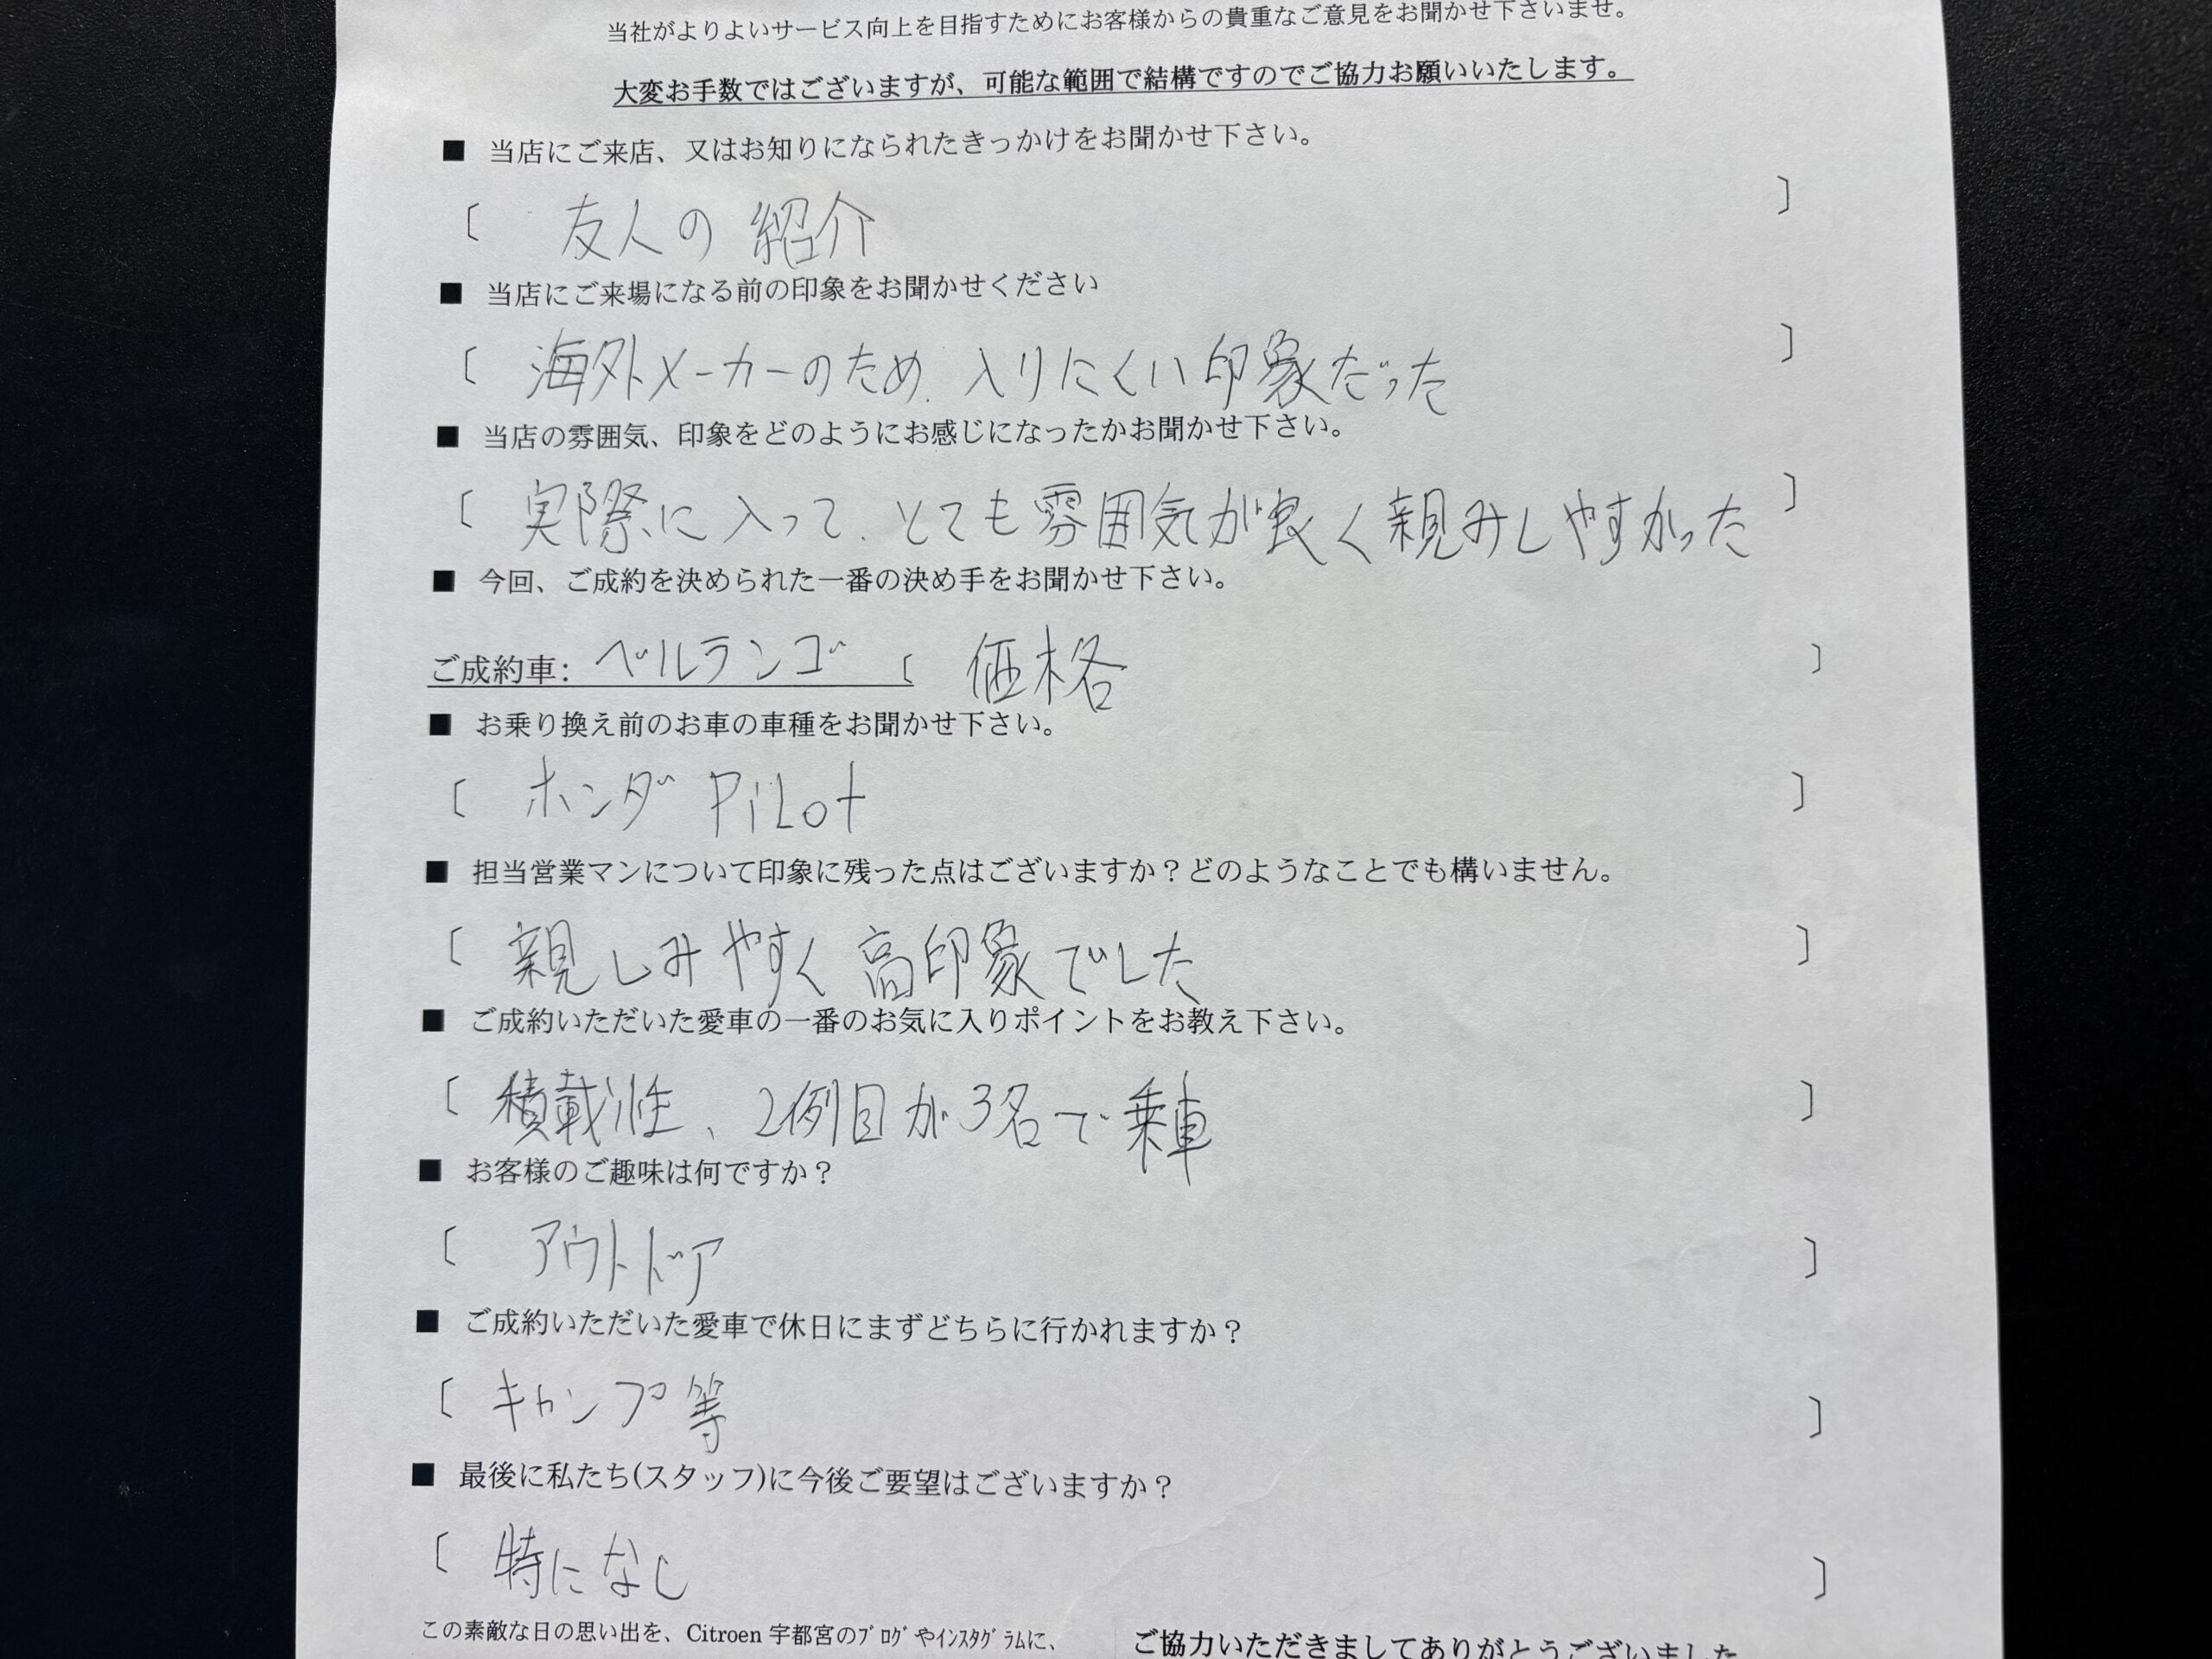 当社がよりよいサービス向上を目指すためにお客様からの貴重なご意見をお聞かせ下さいませ。
大変お手数ではございますが、可能な範囲で結構ですのでご協力お願いいたします。
■ 当店にご来店、又はお知りになられたきっかけをお聞かせ下さい。
〔 友人の紹介 〕
■ 当店にご来場になる前の印象をお聞かせください
〔 海外メーカーのため、入りにくい印象だった 〕
■ 当店の雰囲気、印象をどのようにお感じになったかお聞かせ下さい。
〔 実際に入って、とても雰囲気が良く親みしやすかった 〕
■ 今回、ご成約を決められた一番の決め手をお聞かせ下さい。
ご成約車: ベルランゴ 〔 価格 〕
■ お乗り換え前のお車の車種をお聞かせ下さい。
〔 ホンダ PiLot 〕
■ 担当営業マンについて印象に残った点はございますか？どのようなことでも構いません。
〔 親しみやすく高印象でした 〕
■ ご成約いただいた愛車の一番のお気に入りポイントをお教え下さい。
〔 積載性、2例目が3名で乗車 〕
■ お客様のご趣味は何ですか？
〔 アウトドア 〕
■ ご成約いただいた愛車で休日にまずどちらに行かれますか？
〔 キャンプ等 〕
■ 最後に私たち(スタッフ)に今後ご要望はございますか？
〔 特になし 〕
この素敵な日の思い出を、Citroen 宇都宮のﾌﾞﾛｸﾞやｲﾝｽﾀｸﾞﾗﾑに、
ご協力いただきましてありがとうございました